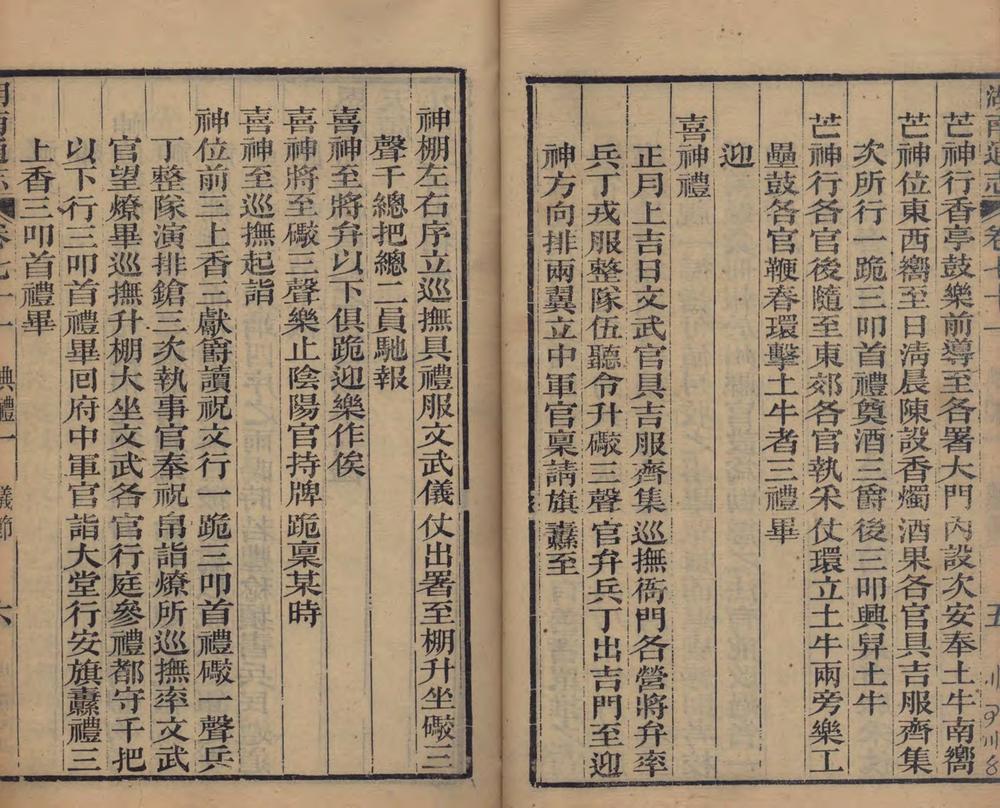 湖南通志 卷七十一 五
芒神行香亭鼓樂前導至各署大門內設次安奉土牛南嚮
芒神位東西嚮至日淸晨陳設香燭酒果各官具吉服齊集
次所行一跪三叩首禮奠酒三爵後三叩興舁土牛
芒神行各官後隨至東郊各官執采仗環立土牛兩旁樂工
壘鼓各官鞭春環擊土牛者三禮畢
迎
喜神禮
正月上吉日文武官具吉服齊集巡撫衙門各營將弁率
兵丁戎服整隊伍聽令升礮三聲官弁兵丁出吉門至迎
神方向排兩翼立中軍官稟請旗纛至
神棚左右序立巡撫具禮服文武儀仗出署至棚升坐礮三
聲千總把總二員馳報
喜神至將弁以下俱跪迎樂作俟
喜神將至礮三聲樂止陰陽官持牌跪稟某時
喜神至巡撫起詣
神位前三上香三獻爵讀祝文行一跪三叩首禮礮一聲兵
丁整隊演排鎗三次執事官奉祝帛詣燎所巡撫率文武
官望燎畢巡撫升棚大坐文武各官行庭參禮都守千把
以下行三叩首禮畢回府中軍官詣大堂行安旗纛禮三
上香三叩首禮畢
湖南通志 卷七十一 典禮一 儀節 六